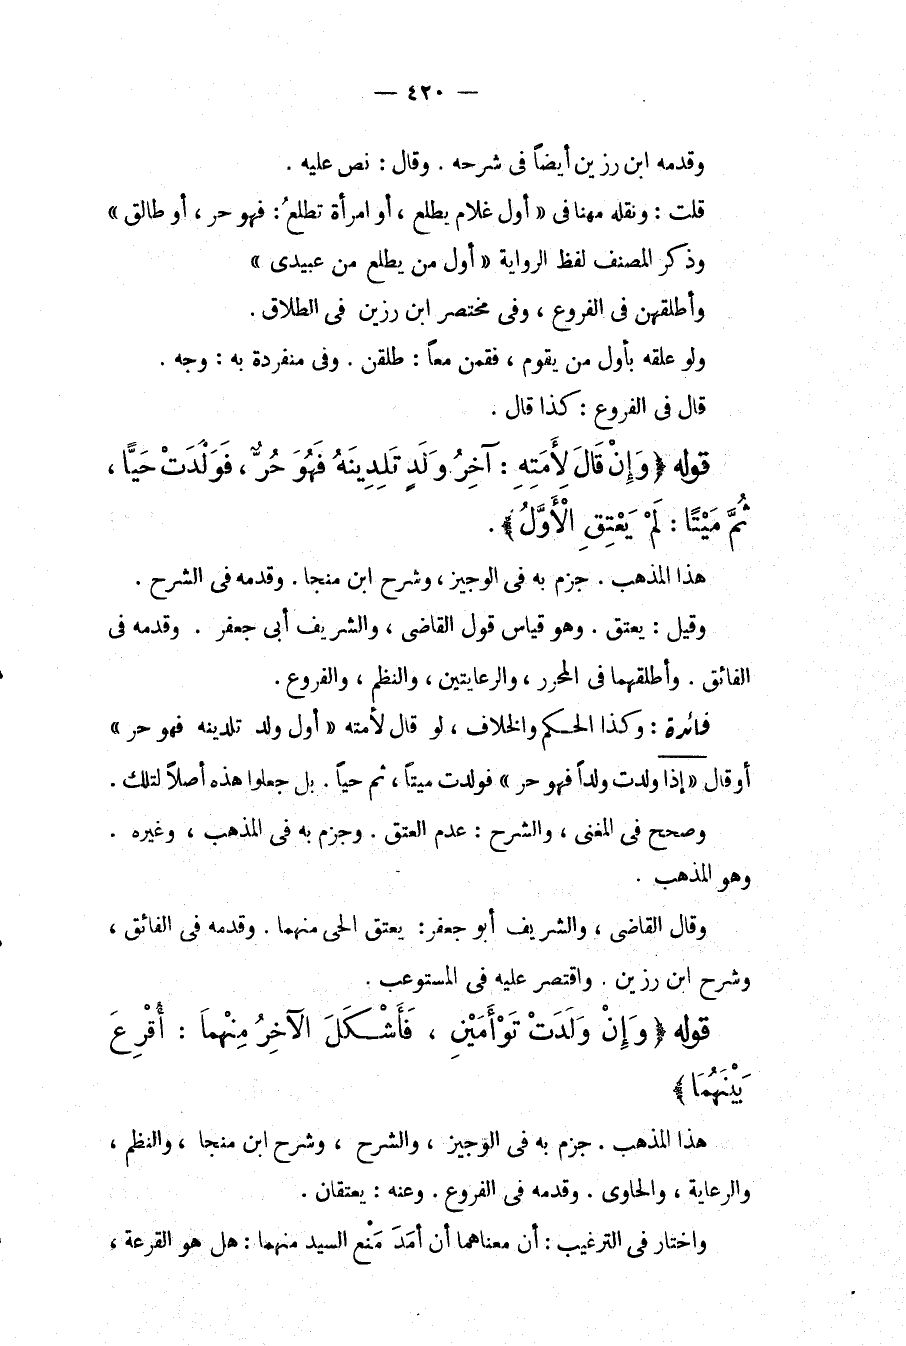 — ٤٢٠ —
وقدمه ابن رزين أيضاً فى شرحه . وقال : نص عليه .
قلت : ونقله مهنا فى « أول غلام يطلع ، أو امرأة تطلع : فهو حر ، أو طالق »
وذكر المصنف لفظ الرواية « أول من يطلع من عبيدى »
وأطلقهن فى الفروع ، وفى مختصر ابن رزين فى الطلاق .
ولو علقه بأول من يقوم ، فقمن معاً : طلقن . وفى منفردة به : وجه .
قال فى الفروع : كذا قال .
قوله ﴿ وَإِنْ قَالَ لِأَمَتِهِ : آخِرُ وَلَدٍ تَلِدِينَهُ فَهُوَ حُرٌّ ، فَوَلَدَتْ حَيًّا ،
ثُمَّ مَيْتًا : لَمْ يَعْتِقِ الْأَوَّلُ ﴾ .
هذا المذهب . جزم به فى الوجيز ، وشرح ابن منجا . وقدمه فى الشرح .
وقيل : يعتق . وهو قياس قول القاضى ، والشريف أبى جعفر . وقدمه فى
الفائق . وأطلقهما فى المحرر ، والرعايتين ، والنظم ، والفروع .
فائدة : وكذا الحكم والخلاف ، لو قال لأمته « أول ولد تلدينه فهو حر »
أو قال « إذا ولدت ولداً فهو حر » فولدت ميتاً ، ثم حياً . بل جعلوا هذه أصلاً لتلك .
وصحح فى المغنى ، والشرح : عدم العتق . وجزم به فى المذهب ، وغيره .
وهو المذهب .
وقال القاضى ، والشريف أبو جعفر : يعتق الحى منهما . وقدمه فى الفائق ،
وشرح ابن رزين . واقتصر عليه فى المستوعب .
قوله ﴿ وَإِنْ وَلَدَتْ تَوْأَمَيْنِ ، فَأَشْكَلَ الآخِرُ مِنْهُمَا : أُقْرِعَ
بَيْنَهُمَا ﴾
هذا المذهب . جزم به فى الوجيز ، والشرح ، وشرح ابن منجا ، والنظم ،
والرعاية ، والحاوى . وقدمه فى الفروع . وعنه : يعتقان .
واختار فى الترغيب : أن معناهما أن أمَدَ مَنْع السيد منهما : هل هو القرعة ،